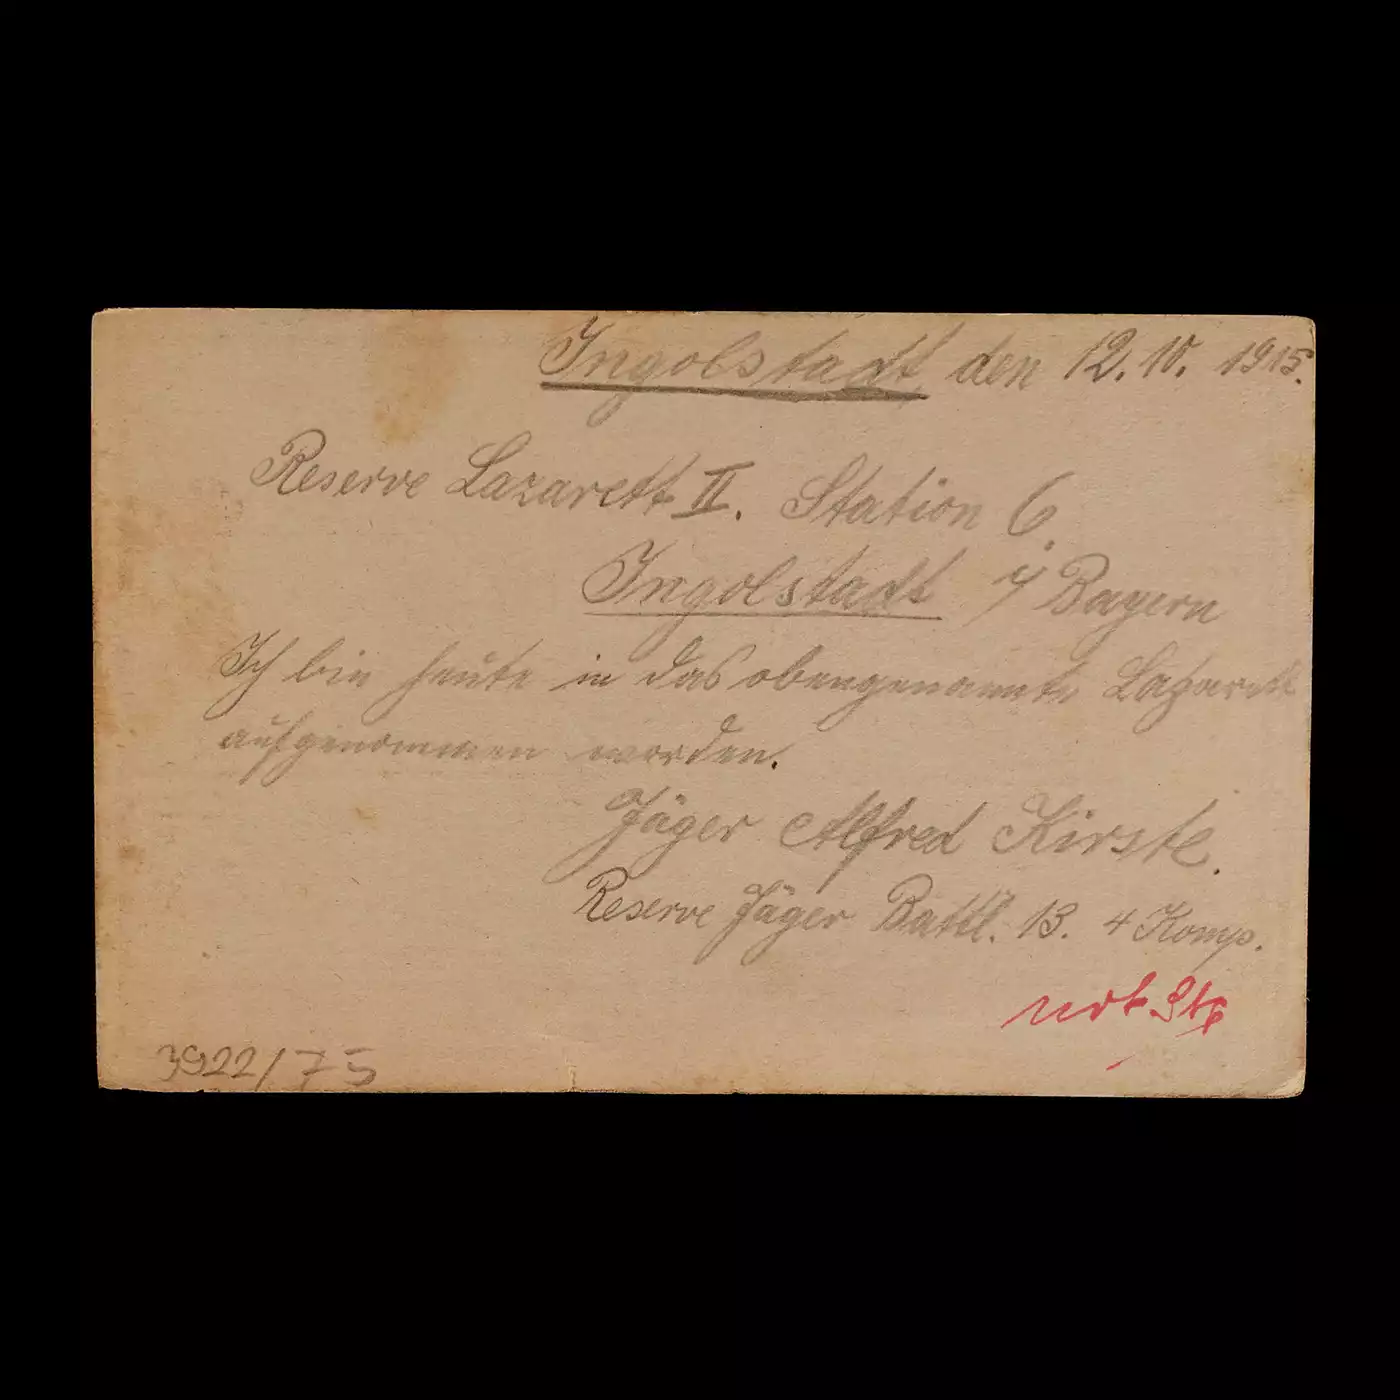 Ingolstadt, den 12.10.1915.
Reserve Lazarett II. Station 6.
Ingolstadt i/ Bayern
Ich bin heute in das obengenannte Lazarett
aufgenommen worden.
Jäger Alfred Kirste.
Reserve Jäger Battl. 13. 4 Komp.
3922/75